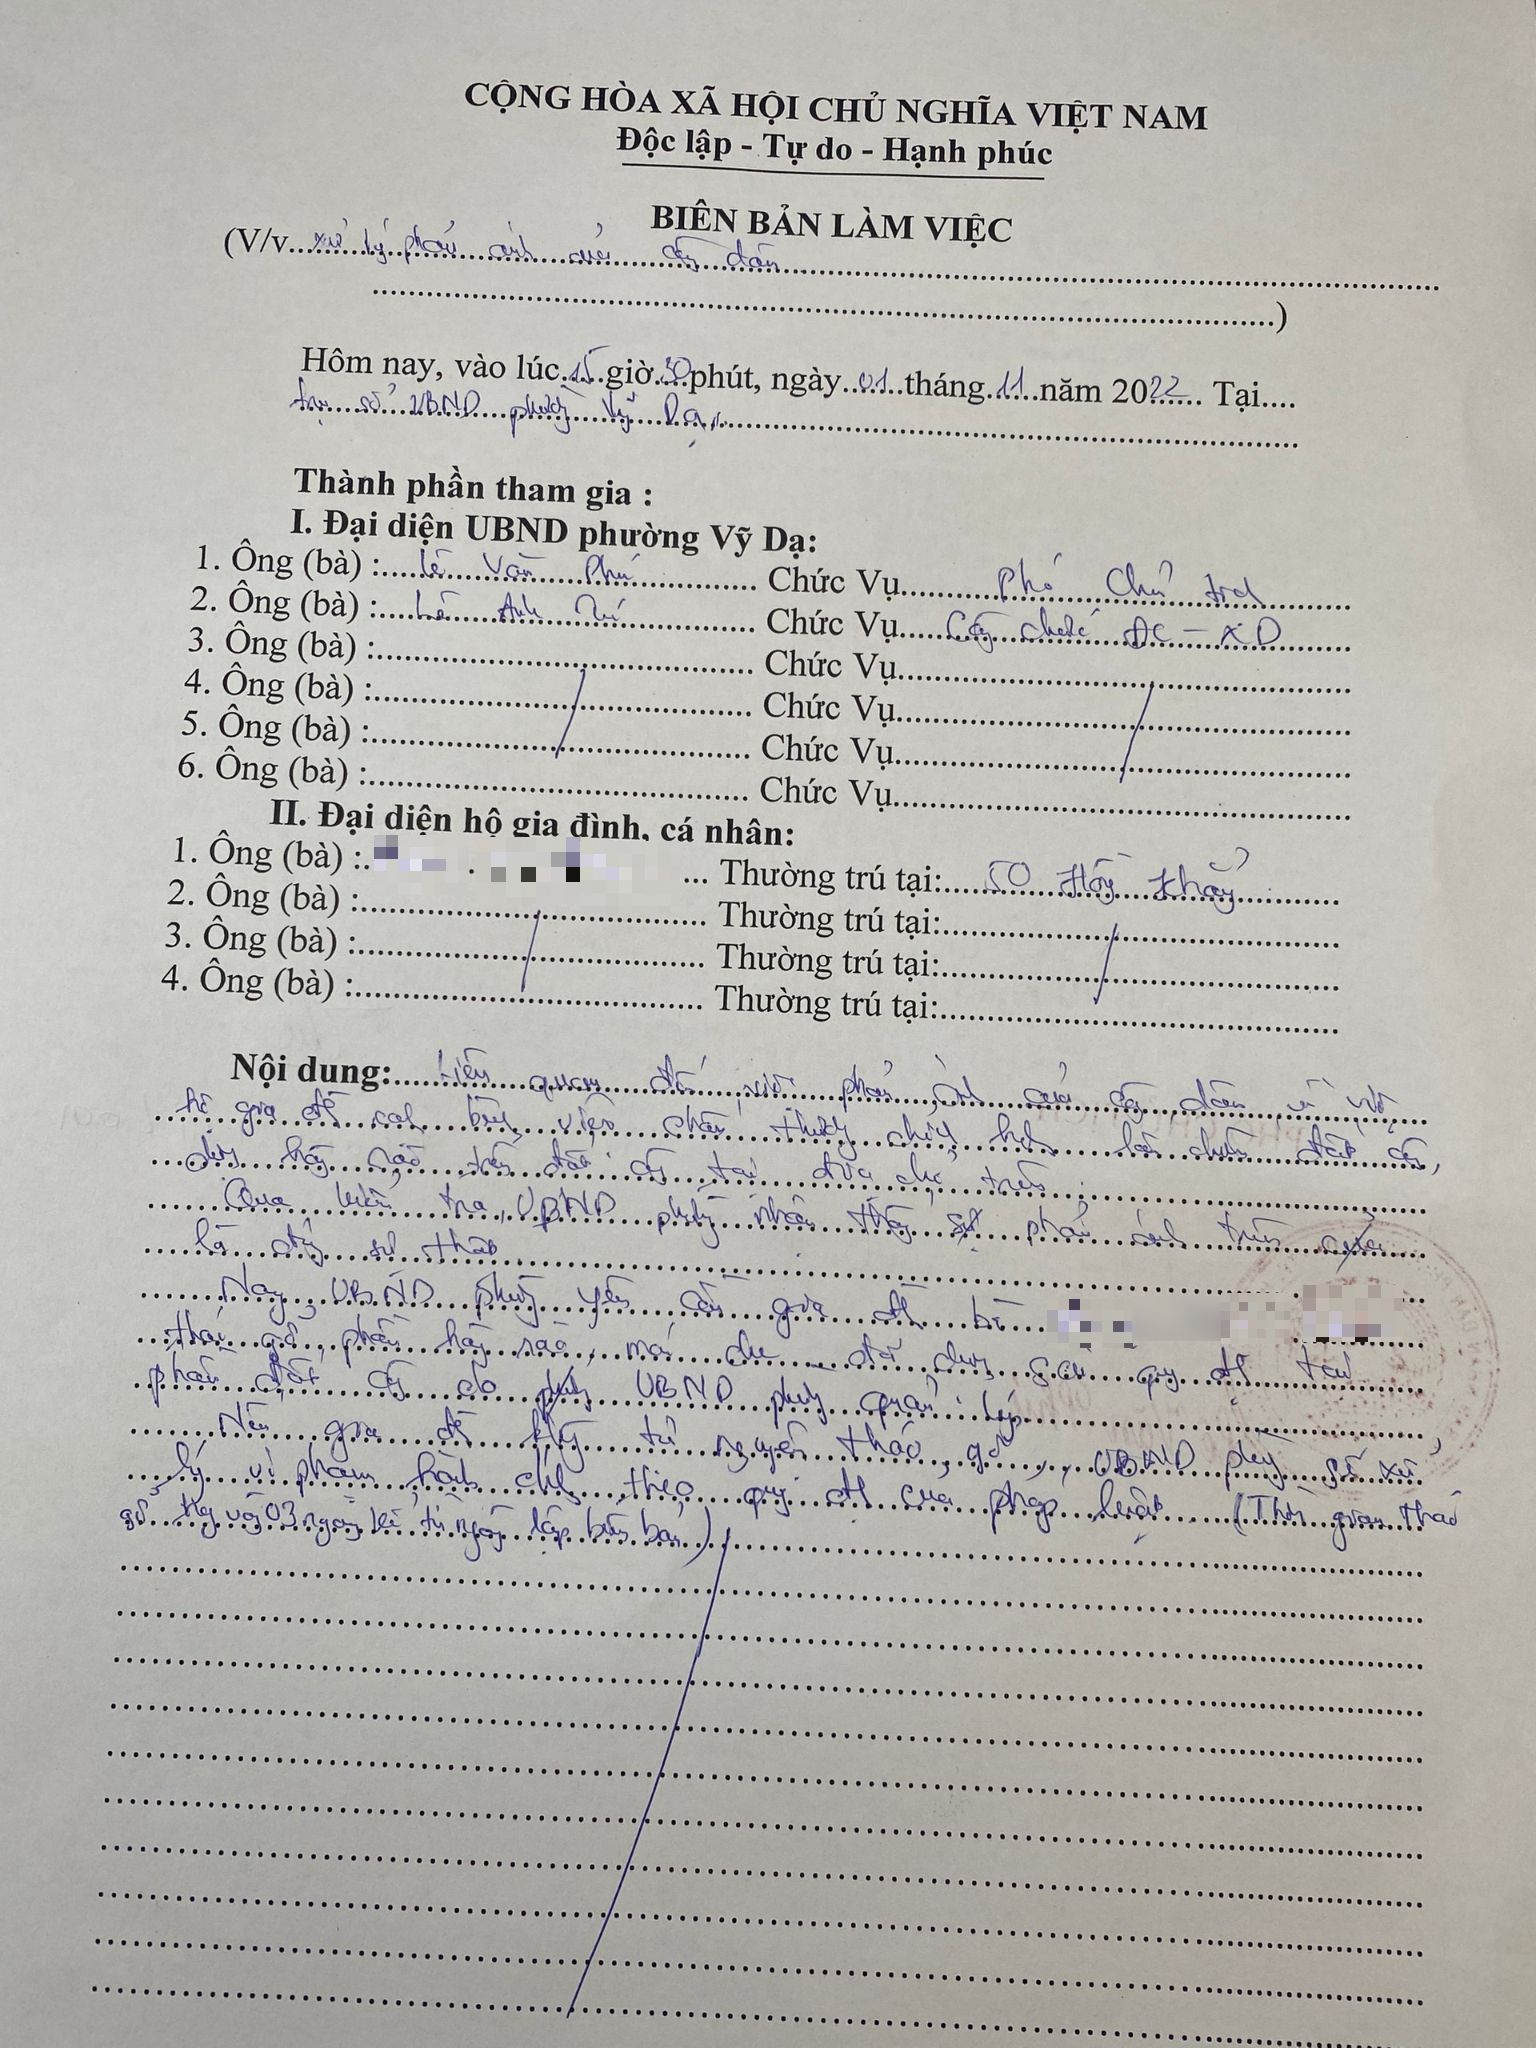 CỘNG HÒA XÃ HỘI CHỦ NGHĨA VIỆT NAM
Độc lập - Tự do - Hạnh phúc
BIÊN BẢN LÀM VIỆC
(V/v xử lý phản ánh của công dân
)
Hôm nay, vào lúc 15 giờ 30 phút, ngày 01 tháng 11 năm 2022 Tại
trụ sở UBND phường Vỹ Dạ
Thành phần tham gia :
I. Đại diện UBND phường Vỹ Dạ:
1. Ông (bà) : Lê Văn Phú Chức Vụ Phó Chủ tịch
2. Ông (bà) : Lê Anh Chức Vụ Công chức ĐC - XD
3. Ông (bà) : Chức Vụ
4. Ông (bà) : Chức Vụ
5. Ông (bà) : Chức Vụ
6. Ông (bà) : Chức Vụ
II. Đại diện hộ gia đình, cá nhân:
1. Ông (bà) : Thường trú tại: 50
2. Ông (bà) : Thường trú tại:
3. Ông (bà) : Thường trú tại:
4. Ông (bà) : Thường trú tại:
Nội dung: Liên quan đến việc phản ánh của công dân về việc
hộ gia đình lấn chiếm đất công,
dựng hàng rào trên đất công tại địa chỉ trên.
Qua kiểm tra, UBND phường nhận thấy phản ánh trên
là đúng sự thật
Nay, UBND phường yêu cầu gia đình bà
tháo gỡ phần hàng rào, mái che đã dựng quy định tại
phần đất công do UBND phường quản lý
Nếu gia đình không tự nguyện tháo gỡ, UBND phường sẽ xử
lý vi phạm hành chính theo quy định của pháp luật (Thời gian tháo
gỡ trong vòng 03 ngày kể từ ngày lập biên bản)